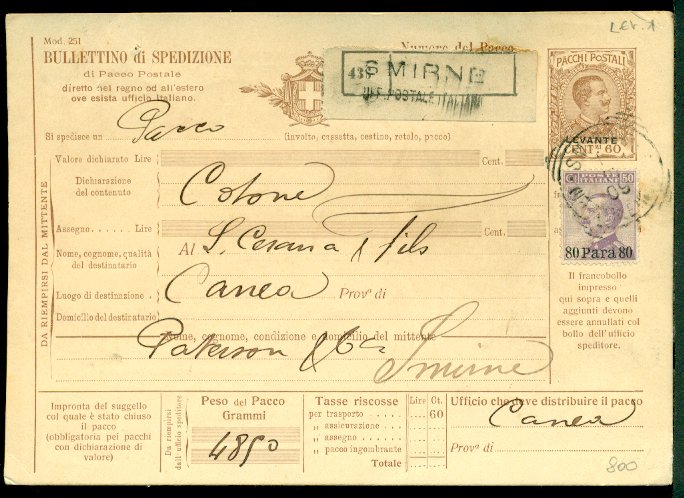 Lev. 1
Mod. 251
BULLETTINO di SPEDIZIONE
di Pacco Postale
diretto nel regno od all'estero
ove esista ufficio italiano.
Numero del Pacco
SMIRNE
UFF. POSTALE ITALIANO
PACCHI POSTALI
LEVANTE
CENT.MI 60
Si spedisce un Pacco (involto, cassetta, cestino, rotolo, pacco)
DA RIEMPIRSI DAL MITTENTE
Valore dichiarato Lire Cent.
Dichiarazione del contenuto Cotone
Assegno Lire Cent.
Nome, cognome, qualità del destinatario Al L. Cesana & Fils
Luogo di destinazione Canea Provª di
Domicilio del destinatario
Nome, cognome, condizione e domicilio del mittente
Paterson & Co Smirne
POSTE ITALIANE 50
80 Para 80
Il francobollo
impresso
qui sopra e quelli
aggiunti devono
essere annullati col
bollo dell'ufficio
speditore.
Impronta del suggello
col quale è stato chiuso
il pacco
(obbligatoria pei pacchi
con dichiarazione di
valore)
Da riempirsi
dall'ufficio speditore
Peso del Pacco
Grammi
4850
Tasse riscosse Lire Ct.
per trasporto 60
„ assicurazione
„ assegno
„ pacco ingombrante
Totale
Ufficio che deve distribuire il pacco
Canea
Provª di
800